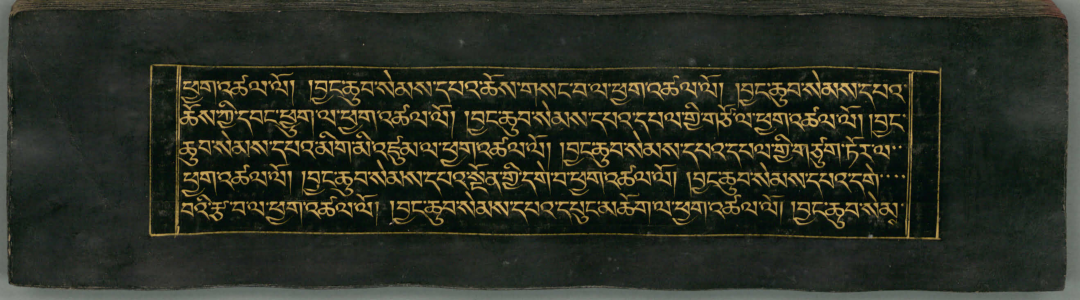 ཕྱག་འཚལ་ལོ། །བྱང་ཆུབ་སེམས་དཔའ་ཆོས་གསང་བ་ལ་ཕྱག་འཚལ་ལོ། །བྱང་ཆུབ་སེམས་དཔའ་
ཆོས་ཀྱི་དབང་ཕྱུག་ལ་ཕྱག་འཚལ་ལོ། །བྱང་ཆུབ་སེམས་དཔའ་དཔལ་གྱི་གཙོ་ལ་ཕྱག་འཚལ་ལོ། །བྱང་
ཆུབ་སེམས་དཔའ་མིག་མི་འཛུམ་ལ་ཕྱག་འཚལ་ལོ། །བྱང་ཆུབ་སེམས་དཔའ་དཔལ་གྱི་གཙུག་ཏོར་ལ་་
ཕྱག་འཚལ་ལོ། །བྱང་ཆུབ་སེམས་དཔའ་སྔོན་གྱི་དགེ་བ་ཕྱག་འཚལ་ལོ། །བྱང་ཆུབ་སེམས་དཔའ་དགེ་་་་
བའི་རྩ་བ་ལ་ཕྱག་འཚལ་ལོ། །བྱང་ཆུབ་སེམས་དཔའ་དཔུང་མཆོག་ལ་ཕྱག་འཚལ་ལོ། །བྱང་ཆུབ་སེམ